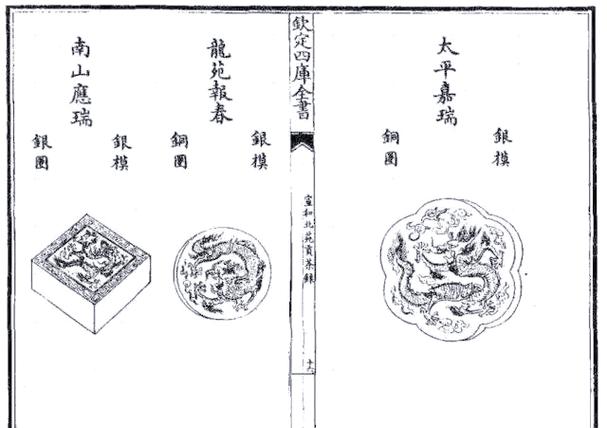 太平嘉瑞
銀模
銅圈
欽定四庫全書
宣和北苑貢茶錄
十六
龍苑報春
銀模
銅圈
南山應瑞
銀模
銀圈